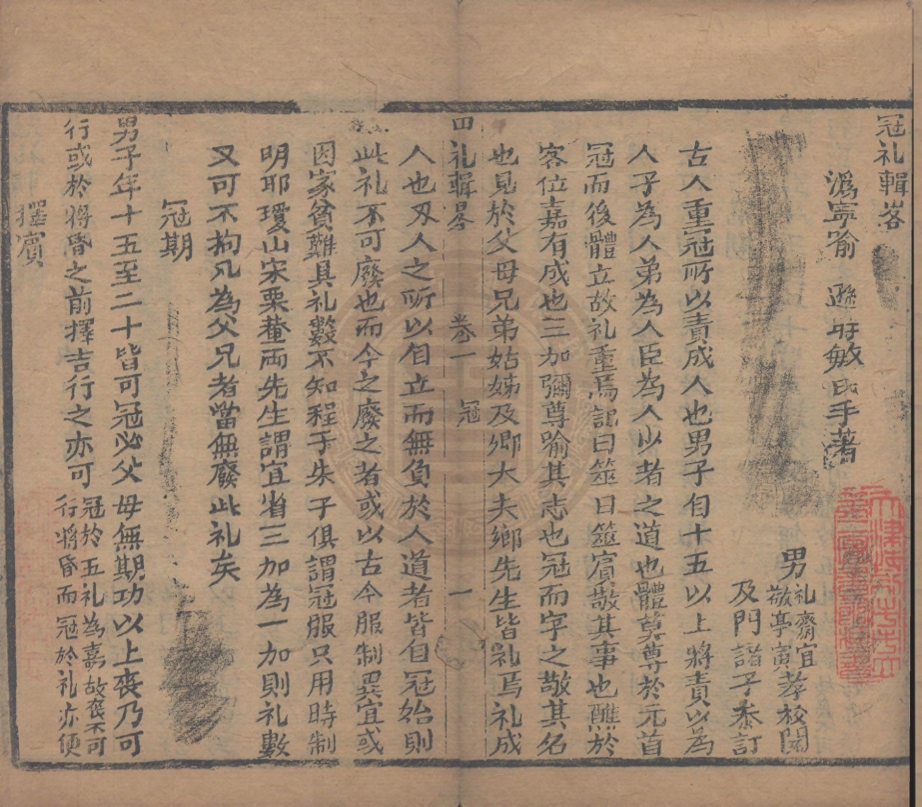 冠礼輯畧
溈寧喻 遜 敏氏手著
男 礼齋宜
敬亭寅孝校閱
及門諸子叅訂
古人重冠所以責成人也男子自十五以上將責以為
人子為人弟為人臣為人少者之道也體莫尊於元首
冠而後體立故礼重焉記曰筮日筮賓敬其事也醮於
客位嘉有成也三加彌尊喻其志也冠而字之敬其名
也見於父母兄弟姑姊及卿大夫鄉先生皆礼焉礼成
四礼輯畧 卷一 冠 一
人也夫人之所以自立而無負於人道者皆自冠始則
此礼不可廢也而今之廢之者或以古今服制異宜或
因家貧難具礼數不知程子朱子俱謂冠服只用時制
明邱瓊山宋栗菴両先生謂宜省三加為一加則礼數
又可不拘凡為父兄者當無廢此礼矣
冠期
男子年十五至二十皆可冠必父母無期功以上喪乃可
行或於將昏之前擇吉行之亦可 冠於五礼為嘉故喪不可
行將昏而冠於礼亦便
擇賓